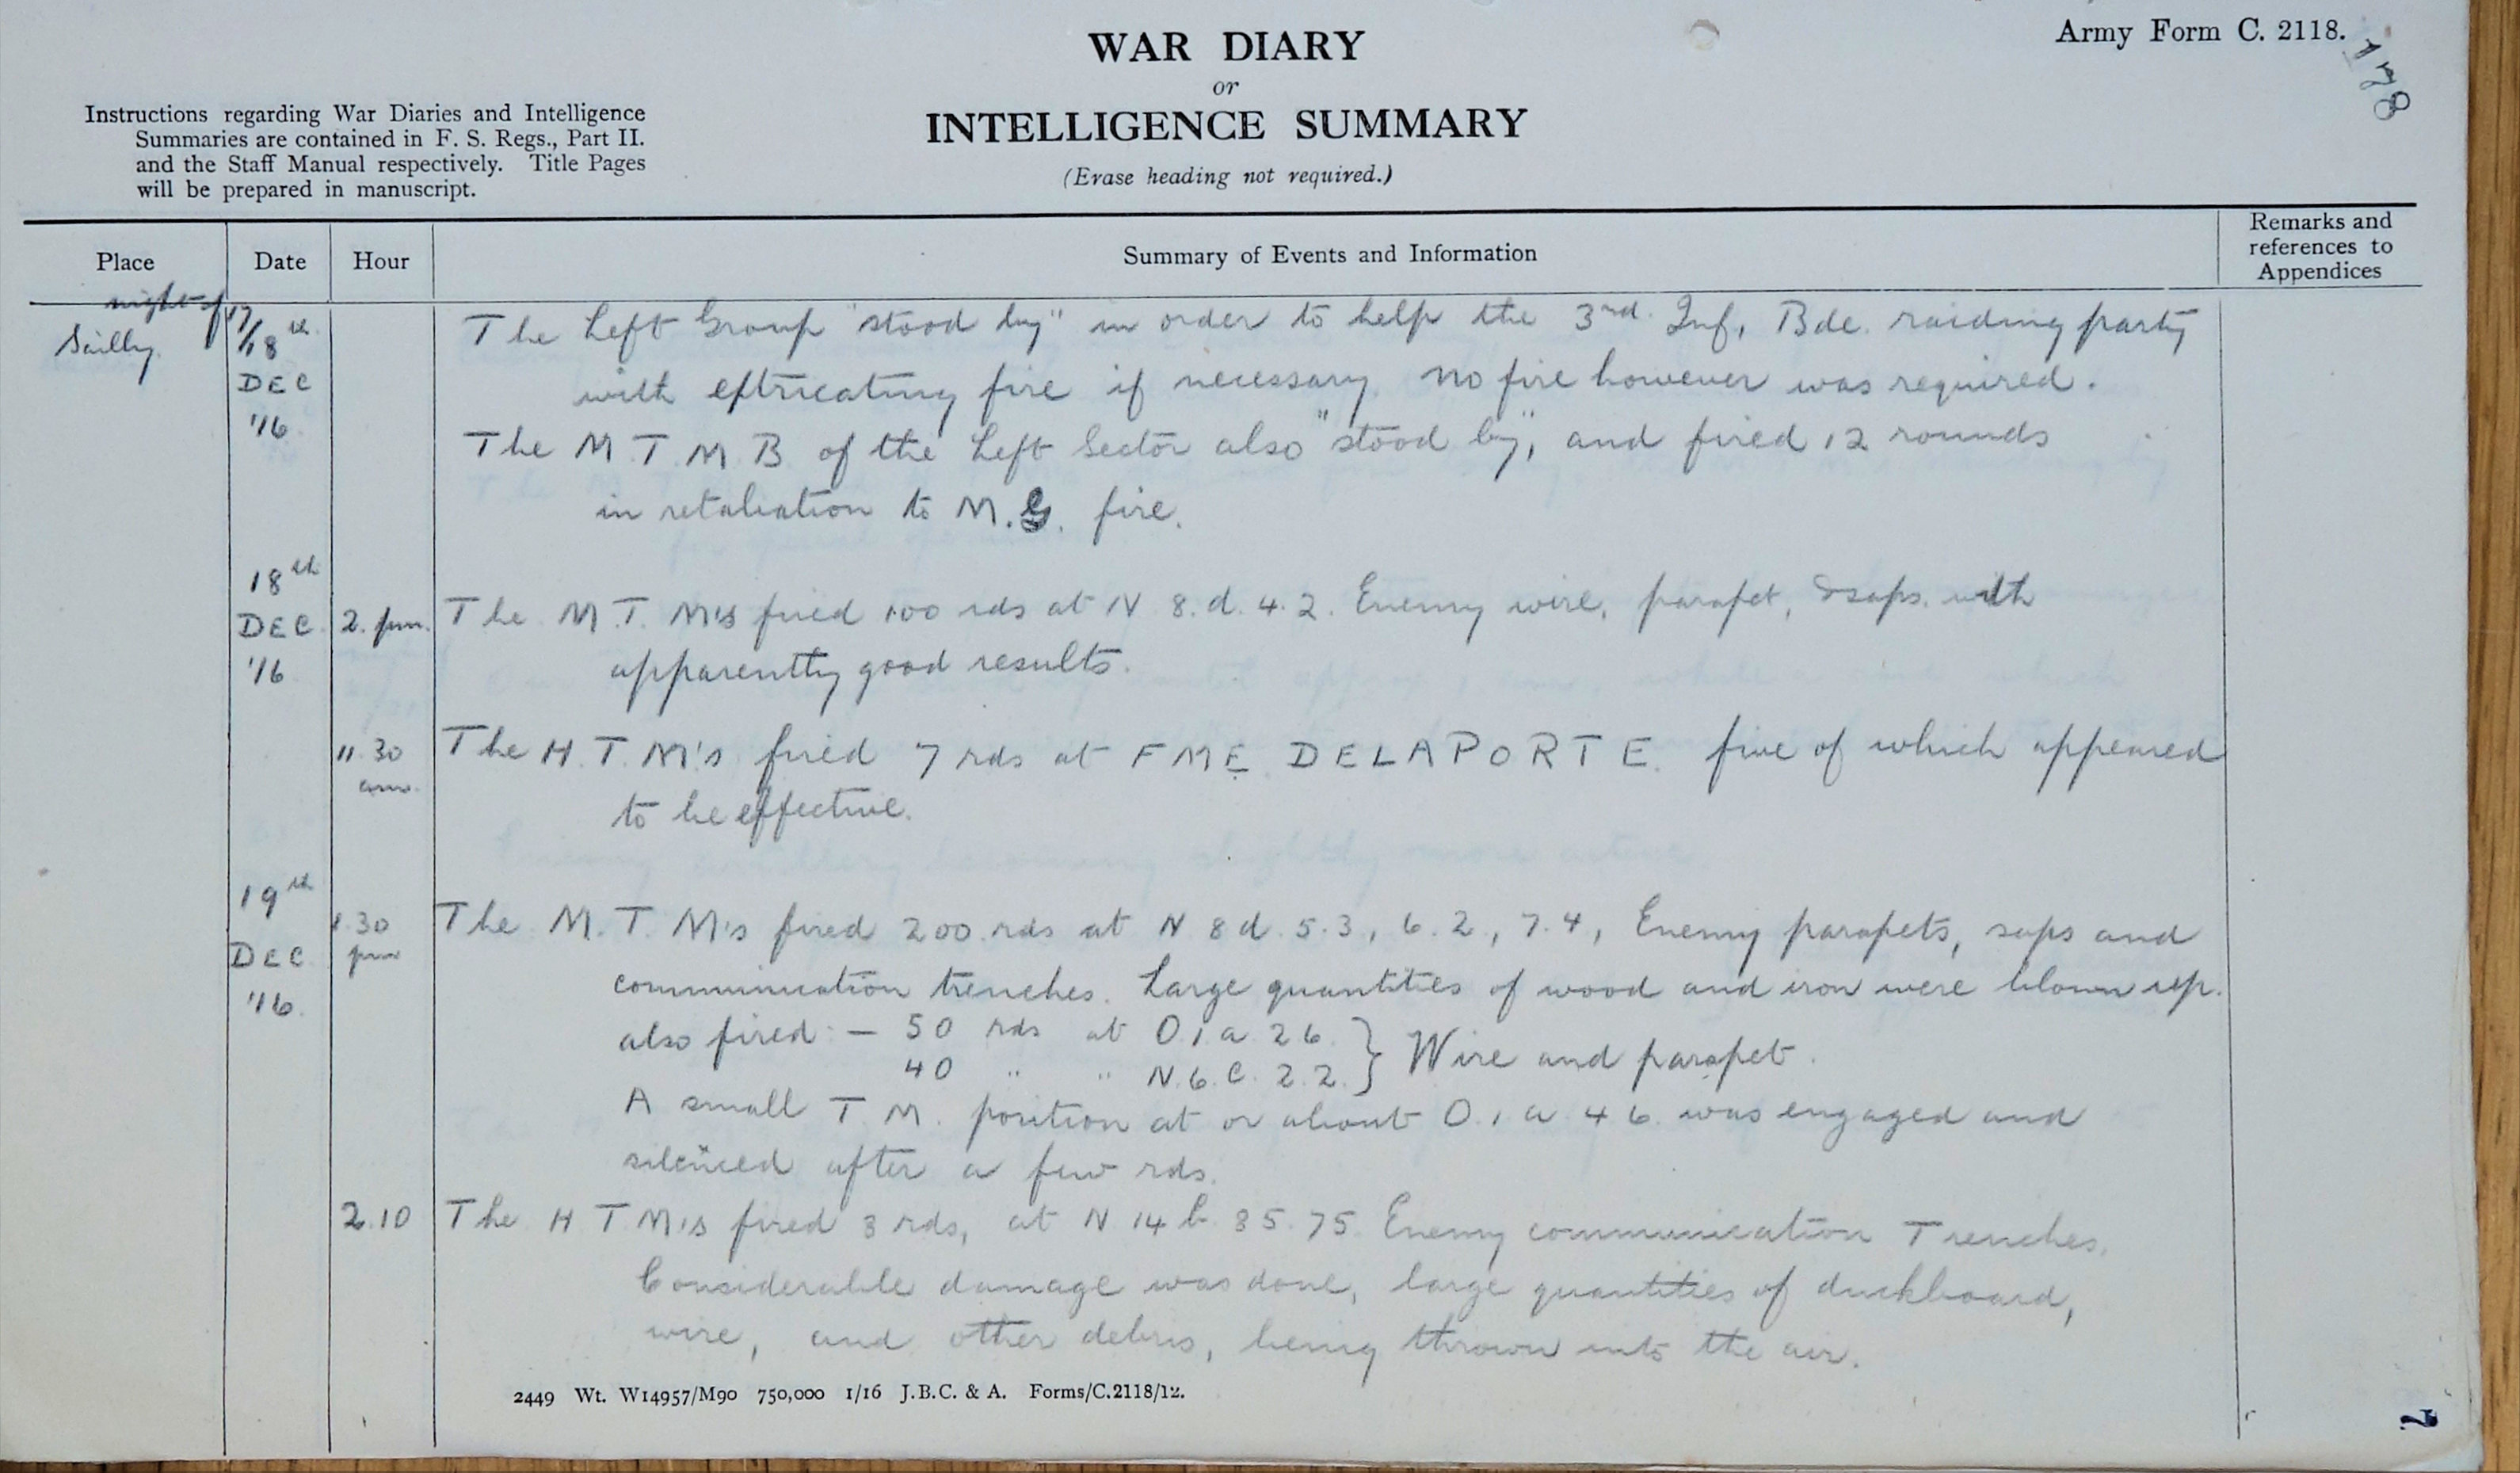 Army Form C. 2118.
178
WAR DIARY
or
INTELLIGENCE SUMMARY
(Erase heading not required.)
Instructions regarding War Diaries and Intelligence
Summaries are contained in F. S. Regs., Part II.
and the Staff Manual respectively. Title Pages
will be prepared in manuscript.
Place Date Hour Summary of Events and Information Remarks and
references to
Appendices
night of 17/18th
Sailly
DEC
'16
The Left Group "stood by" in order to help the 3rd Inf. Bde. raiding party
with extricating fire if necessary. No fire however was required.
The M T M B of the Left Sector also "stood by", and fired 12 rounds
in retaliation to M.G. fire.
18th
DEC
'16
2. pm. The M.T. M's fired 100 rds at N 8. d. 4. 2. Enemy wire, parapet, & saps. with
apparently good results.
11.30
am.
The H.T. M's fired 7 rds at FME DELAPORTE. five of which appeared
to be effective.
19th
DEC
'16.
1.30
pm
The M.T. M's fired 200 rds at N 8 d 5.3, 6.2, 7.4, Enemy parapets, saps and
communication trenches. Large quantities of wood and iron were blown up.
also fired :— 50 rds at O.1.a 2 6 } Wire and parapet.
40 " " N.6.C. 2.2. }
A small T M. position at or about O.1 a 4 6. was engaged and
silenced after a few rds.
2.10 The H T M's fired 3 rds, at N 14 b. 85.75. Enemy communication Trenches.
Considerable damage was done, large quantities of duckboard,
wire, and other debris, being thrown into the air.
2449 Wt. W14957/M90 750,000 1/16 J.B.C. & A. Forms/C.2118/12.